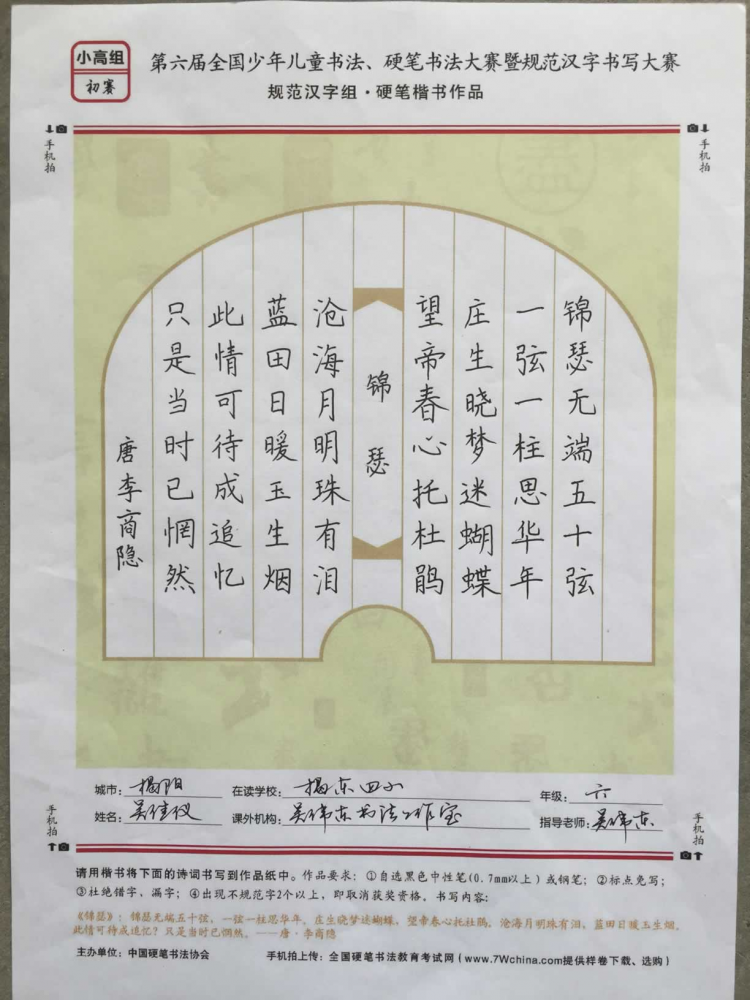 小高组
初赛
第六届全国少年儿童书法、硬笔书法大赛暨规范汉字书写大赛
规范汉字组·硬笔楷书作品
手机拍
手机拍
锦瑟无端五十弦
一弦一柱思华年
庄生晓梦迷蝴蝶
望帝春心托杜鹃
锦瑟
沧海月明珠有泪
蓝田日暖玉生烟
此情可待成追忆
只是当时已惘然
唐李商隐
城市：揭阳 在读学校：揭东四小 年级：六
姓名：吴佳仪 课外机构：吴伟东书法工作室 指导老师：吴伟东
手机拍
手机拍
请用楷书将下面的诗词书写到作品纸中。作品要求：①自选黑色中性笔(0.7mm以上)或钢笔；②标点免写；
③杜绝错字、漏字；④出现不规范字2个以上，即取消获奖资格。书写内容：
《锦瑟》：锦瑟无端五十弦，一弦一柱思华年。庄生晓梦迷蝴蝶，望帝春心托杜鹃。沧海月明珠有泪，蓝田日暖玉生烟。
此情可待成追忆？只是当时已惘然。——唐·李商隐
主办单位：中国硬笔书法协会 手机拍上传：全国硬笔书法教育考试网（www.7Wchina.com提供样卷下载、选购）